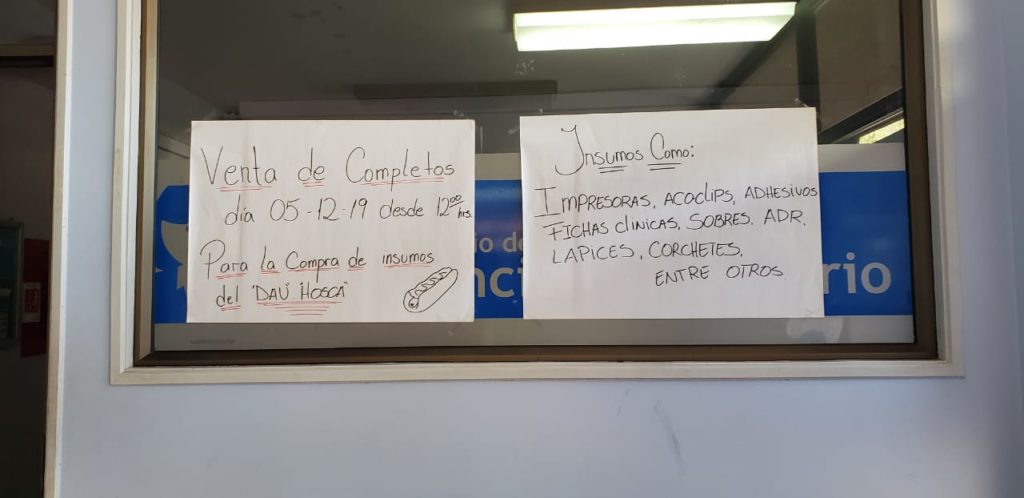 Venta de Completos
día 05-12-19 desde 12⁰⁰ hrs.
Para la Compra de insumos
del "DAU HOSCA"
Insumos Como:
IMPRESORAS, ACOCLIPS, ADHESIVOS
FICHAS CLINICAS, SOBRES. ADR.
LAPICES, CORCHETES,
ENTRE OTROS
io de
nci
rio